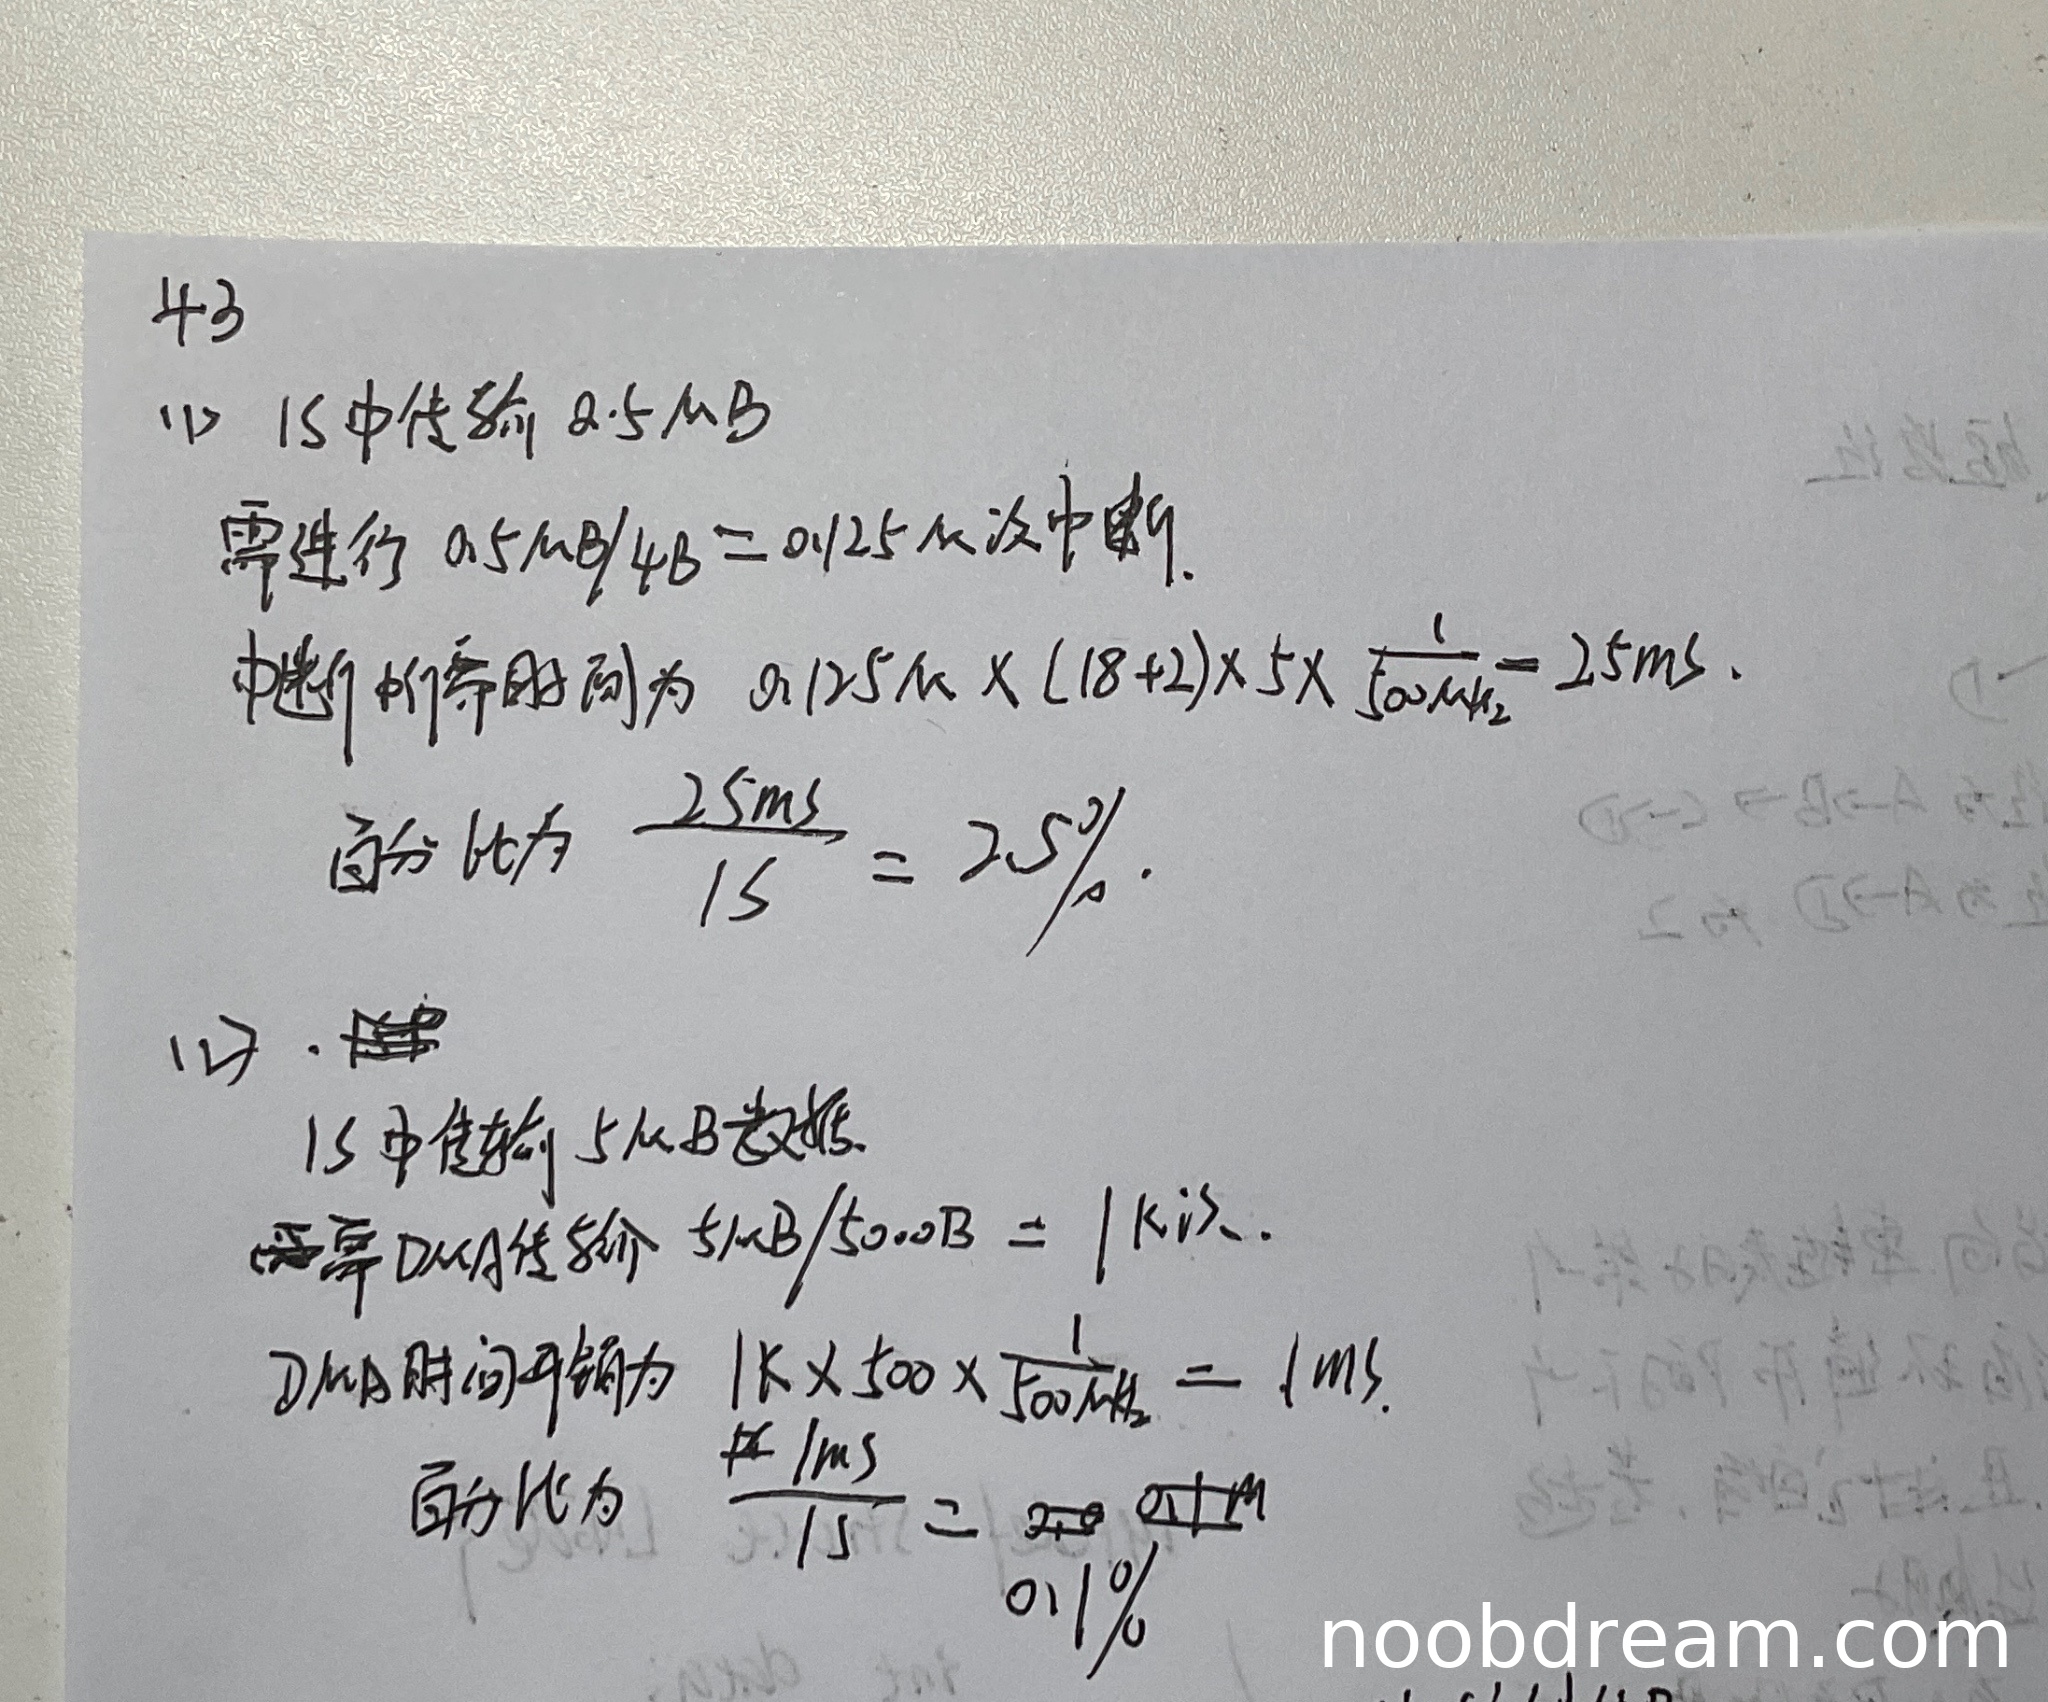 43
(1) 1S中传输 0.5MB
需进行 0.5MB/4B=0.125M次中断.
中断所需时间为 0.125M×(18+2)×5×1/500MHz=25ms.
百分比为 25ms/1S = 2.5%.
(2)
1S中传输5MB数据.
需DMA传输 5MB/5000B = 1K次.
DMA时间开销为 1K×500×1/500MHz = 1ms.
百分比为 1ms/1S =
0.1%
noobdream.com